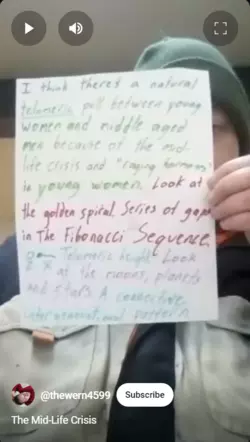 I think there's a natural
telomeric pull between young
women and middle aged
men because of the mid-
life crisis and "raging hormones"
in young women. Look at
the golden spiral. Series of gaps
in The Fibonacci Sequence.
Telomeric height. Look
at the moons, planets
and stars. A connective,
intergenerational pattern
@thewern4599
Subscribe
The Mid-Life Crisis